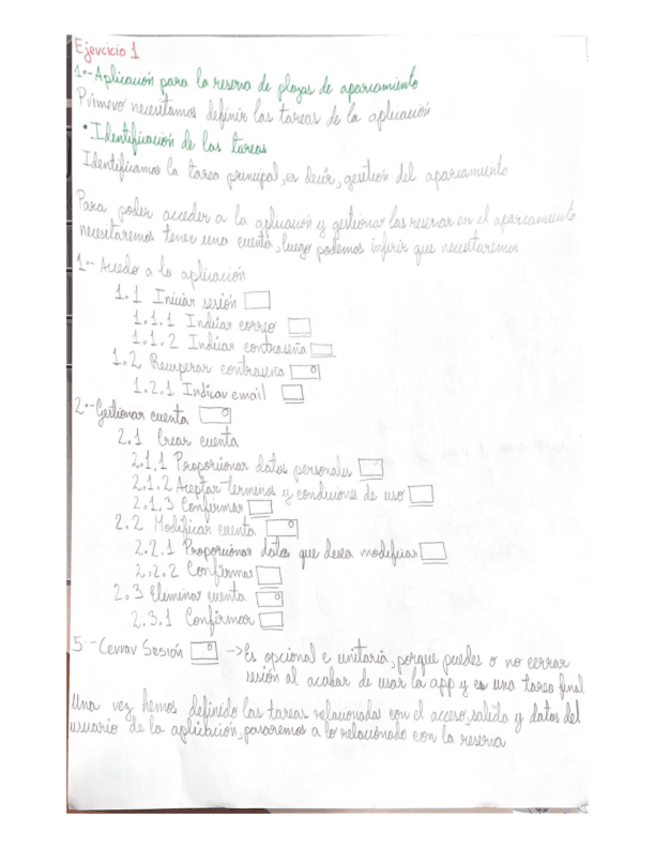 Ejercicio 1
1.-Aplicación para la reserva de plazas de aparcamiento
Primero necesitamos definir las tareas de la aplicación
• Identificación de las tareas
Identificamos la tarea principal, es decir, gestión del aparcamiento
Para poder acceder a la aplicación y gestionar las reservas en el aparcamiento
necesitaremos tener una cuenta, luego podemos inferir que necesitaremos
1.- Acceso a la aplicación
1.1 Iniciar sesión
1.1.1 Indicar correo
1.1.2 Indicar contraseña
1.2 Recuperar contraseña
1.2.1 Indicar email
2.-Gestionar cuenta
2.1 Crear cuenta
2.1.1 Proporcionar datos personales
2.1.2 Aceptar terminos y condiciones de uso
2.1.3 Confirmar
2.2 Modificar cuenta
2.2.1 Proporcionar datos que desea modificar
2.2.2 Confirmar
2.3 Eliminar cuenta
2.3.1 Confirmar
5.-Cerrar Sesión -> Es opcional e unitaria, porque puedes o no cerrar
sesión al acabar de usar la app y es una tarea final
Una vez hemos definido las tareas relacionadas con el acceso, salida y datos del
usuario de la aplicación, pasaremos a lo relacionado con la reserva